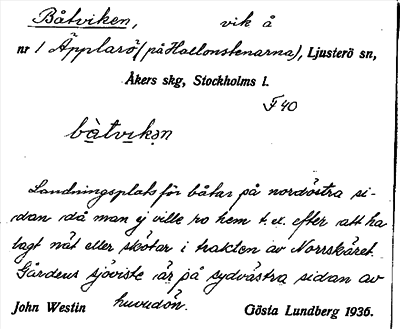 Båtviken, vik å
nr 1 Äpplarö (på Hallonstenarna), Ljusterö sn,
Åkers skg, Stockholms l.
F 40
bàtvikən
Landningsplats för båtar på nordöstra si-
dan då man ej ville ro hem t.ex. efter att ha
lagt nät eller skötar i trakten av Norrskäret.
Gårdens sjöviste är på sydvästra sidan av
huvudön.
John Westin Gösta Lundberg 1936.